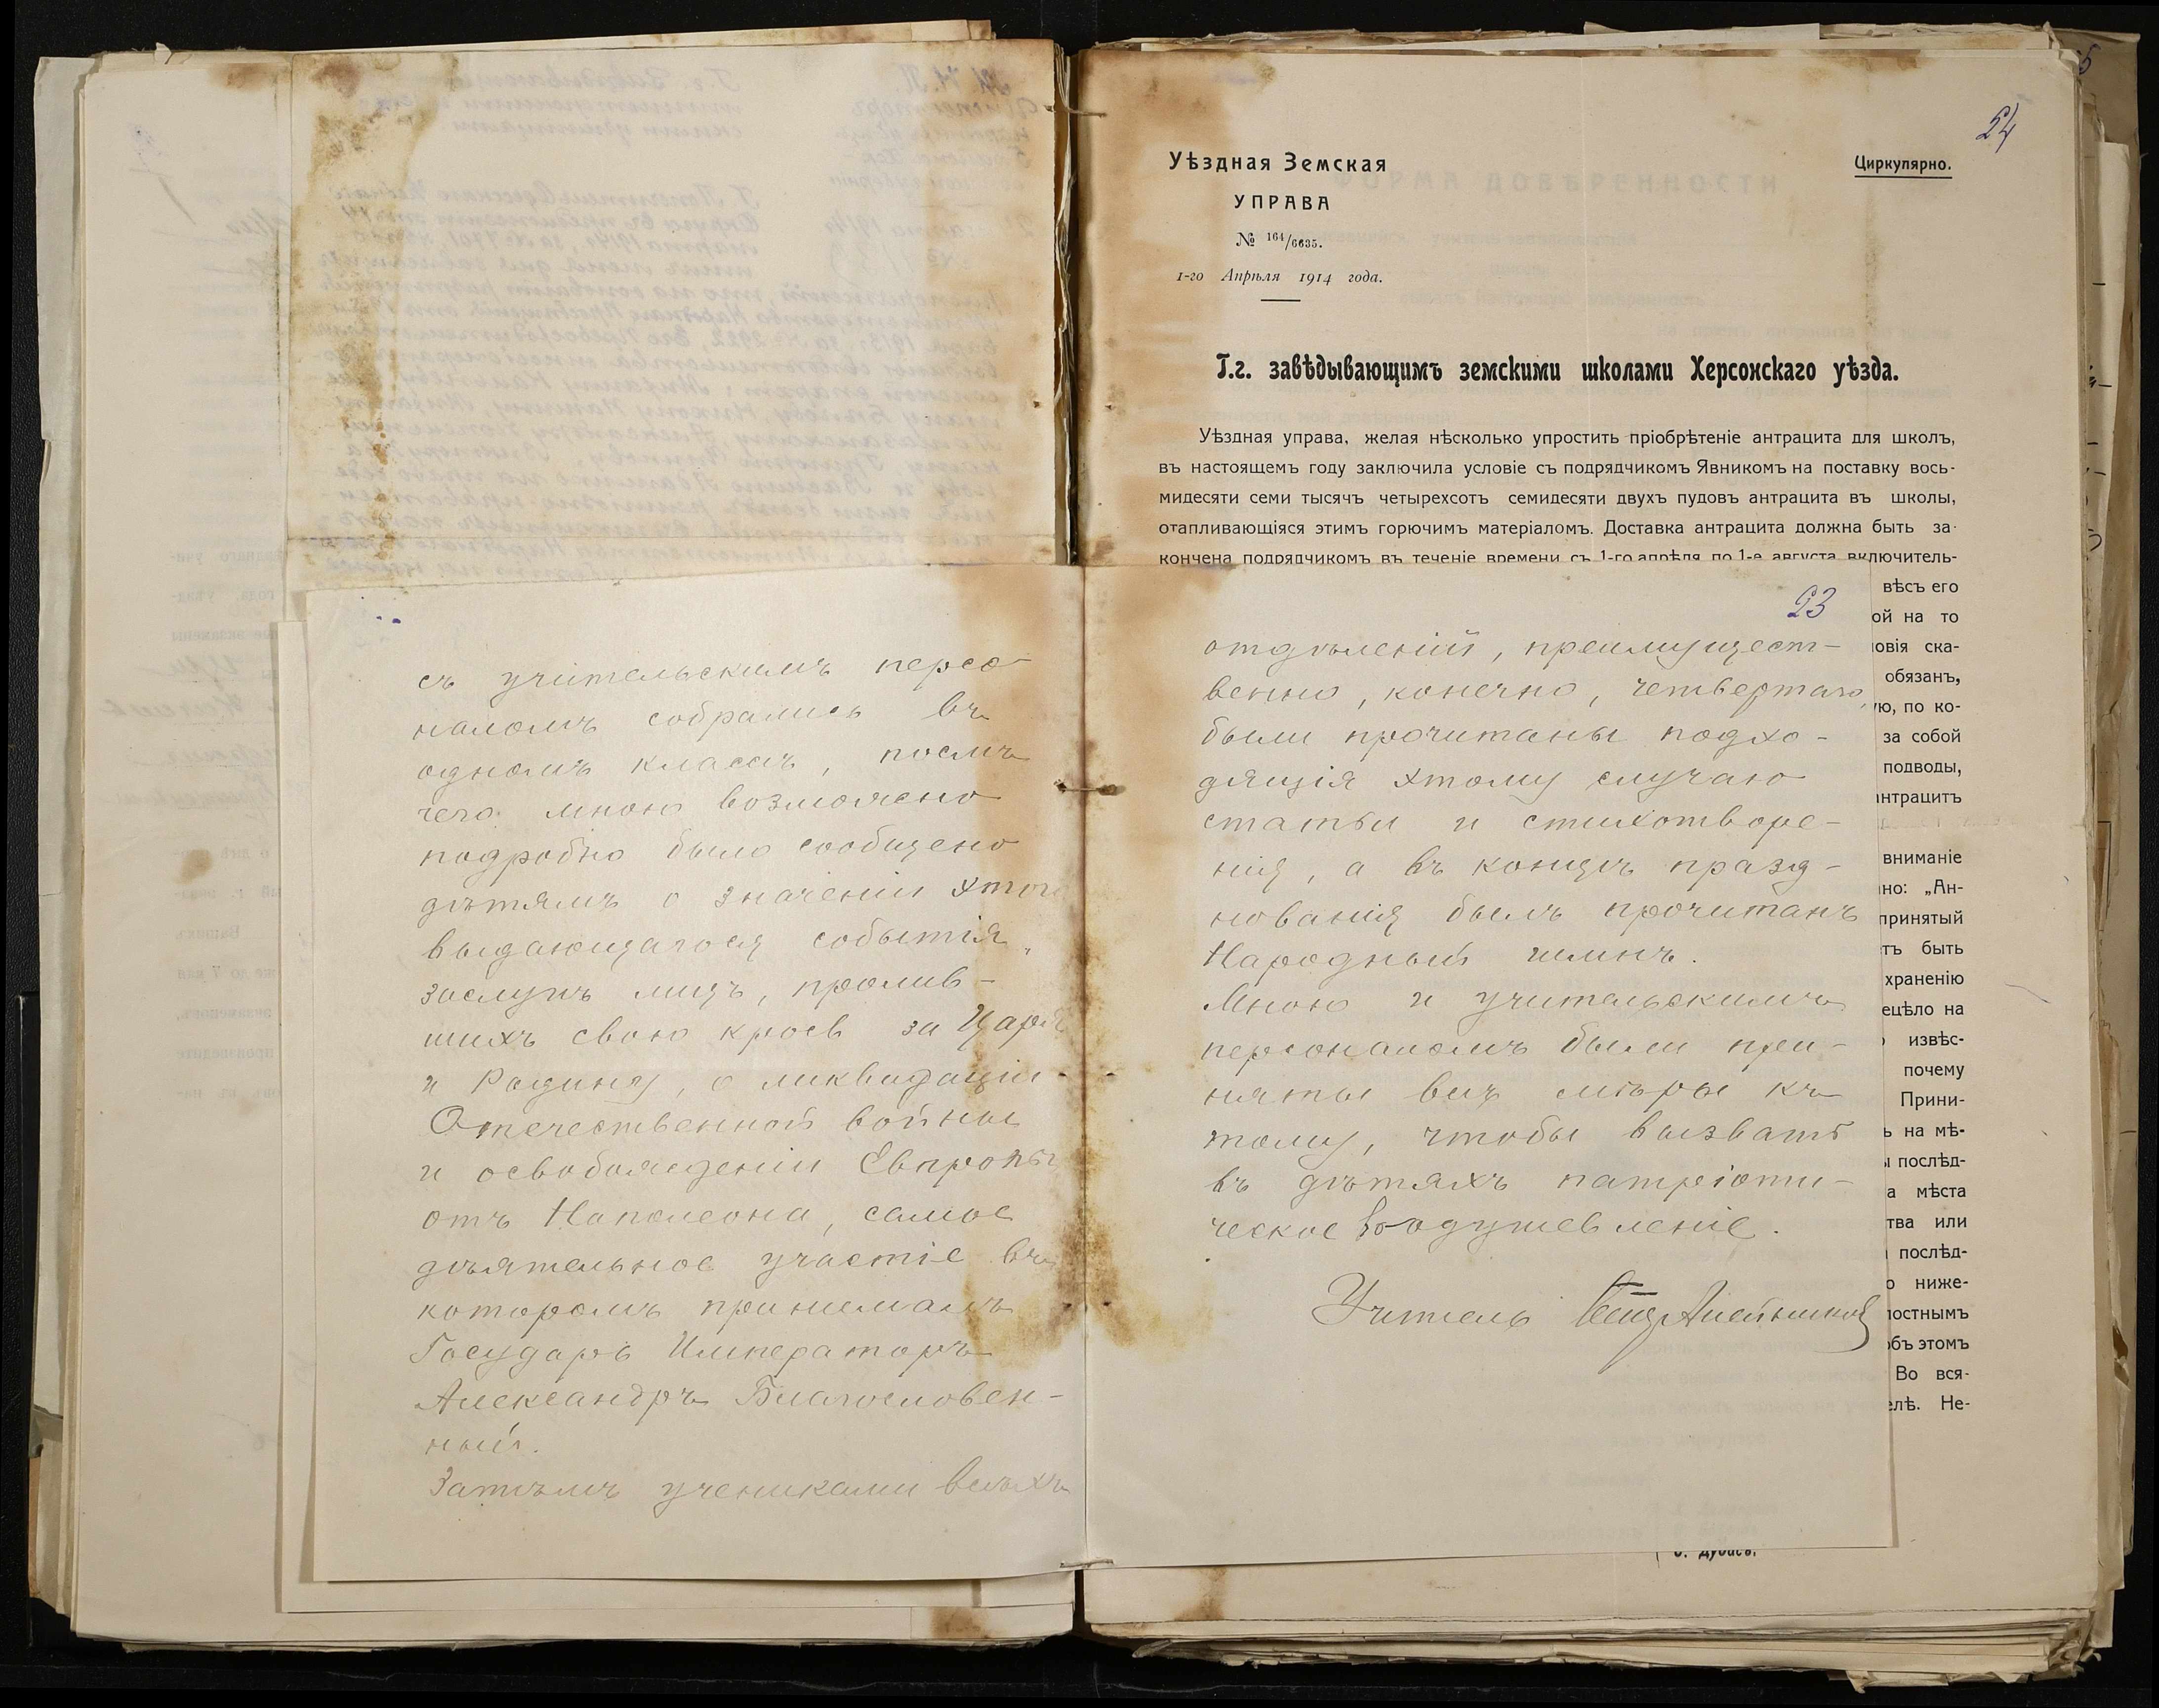 съ учительскимъ персо-
наломъ собрались въ
одномъ классѣ, послѣ
чего мною возможно
подробно было сообщено
дѣтямъ о значеніи этого
выдающагося событія,
заслугѣ лицъ, пролив-
шихъ свою кровь за Царя
и Родину, о ликвидаціи
Отечественной войны
и освобожденіи Европы
отъ Наполеона, самое
дѣятельное участіе въ
которомъ принималъ
Государь Императоръ
Александръ Благословен-
ный.
Затѣмъ учениками всѣхъ
24
Уѣздная Земская
УПРАВА
№ 164/6635.
1-го Апрѣля 1914 года.
Циркулярно.
Г.г. завѣдывающимъ земскими школами Херсонскаго уѣзда.
Уѣздная управа, желая нѣсколько упростить пріобрѣтеніе антрацита для школъ,
въ настоящемъ году заключила условіе съ подрядчикомъ Явникомъ на поставку вось-
мидесяти семи тысячъ четырехсотъ семидесяти двухъ пудовъ антрацита въ школы,
отапливающіяся этимъ горючимъ матеріаломъ. Доставка антрацита должна быть за-
кончена подрядчикомъ въ теченіе времени съ 1-го апрѣля по 1-е августа включитель-
23
отдѣленій, преимущест-
венно, конечно, четвертаго,
были прочитаны подхо-
дящія этому случаю
статьи и стихотворе-
нія, а въ концѣ празд-
нованія былъ прочитанъ
Народный гимнъ.
Мною и учительскимъ
персоналомъ были при-
няты всѣ мѣры къ
тому, чтобы вызвать
въ дѣтяхъ патріоти-
ческое воодушевленіе.
Учитель
вѣсъ его
ой на то
овія ска-
обязанъ,
ую, по ко-
за собой
подводы,
антрацитъ
вниманіе
но: „Ан-
принятый
тъ быть
храненію
ецѣло на
извѣс-
почему
Прини-
ь на мѣ-
послѣд-
а мѣста
тва или
послѣд-
о ниже-
лостнымъ
объ этомъ
Во вся-
елѣ. Не-